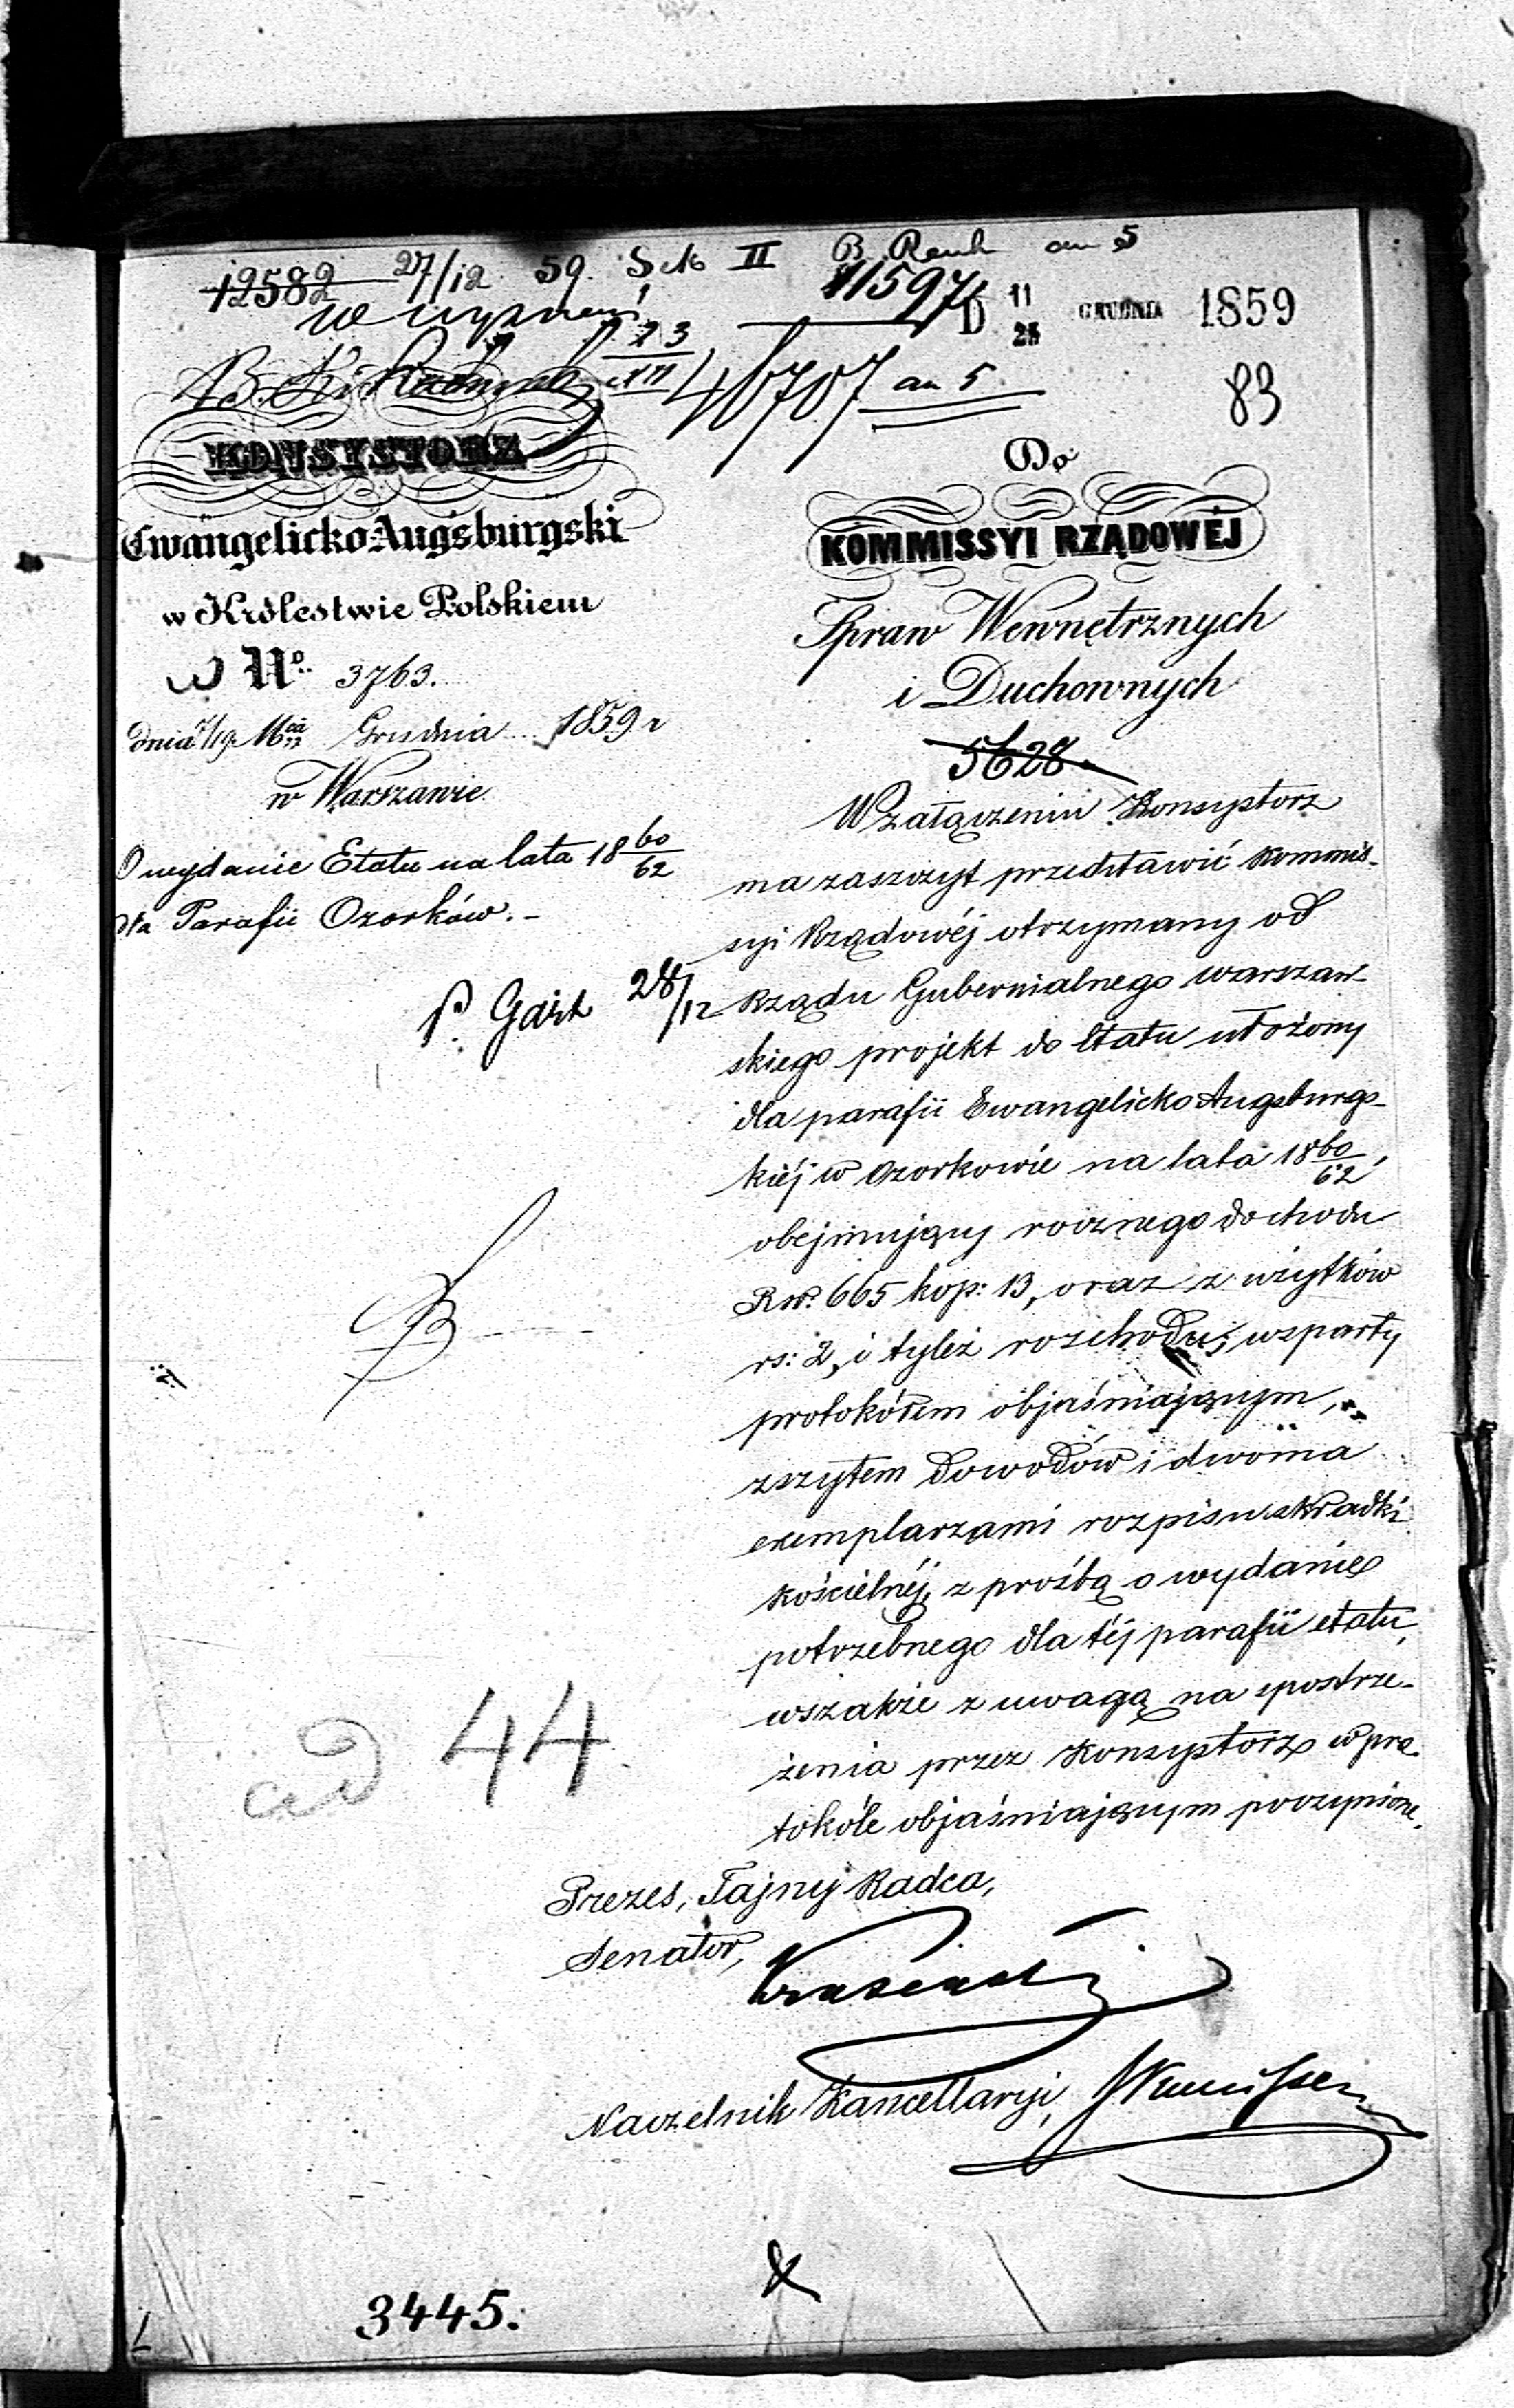 12582 27/12 59. Sek II B. Rach an 5
11597
D 11/23 GRUDNIA 1859
23/XII
46707 an 5
83
KONSYSTORZ
Ewangelicko-Augsburgski
w Królestwie Polskiem
w No. 3763.
dnia 7/19 Mca Grudnia 1859 r
w Warszawie.
O wydanie Etatu na lata 18 60/62
dla Parafii Ozorków. -
P. Gart 28/12
Do
KOMMISSYI RZĄDOWÉJ
Spraw Wewnętrznych
i Duchownych
5628
W załączeniu Konsystorz
ma zaszczyt przedstawić Kommis-
syi Rządowéj otrzymany od
Rządu Gubernialnego Warszaw-
skiego projekt do Etatu ułożony
dla parafii Ewangelicko Augsburgs-
kiéj w Ozorkowie na lata 18 60/62,
obejmujący rocznego dochodu
Rsr. 665 kop: 13, oraz z użytków
rs: 2, i tyleż rozchodu; wsparty
protokółem objaśniającym,
zszytem dowodów i dwoma
exemplarzami rozpisu składki
kościelnéj, z prośbą o wydanie
potrzebnego dla téj parafii etatu,
wszakże z uwagą na spostrze-
żenia przez Konsystorz w pro-
tokóle objaśniającym poczynione.
Prezes, Tajny Radca,
Senator,
Naczelnik Kancellaryi,
ad 44.
3445.